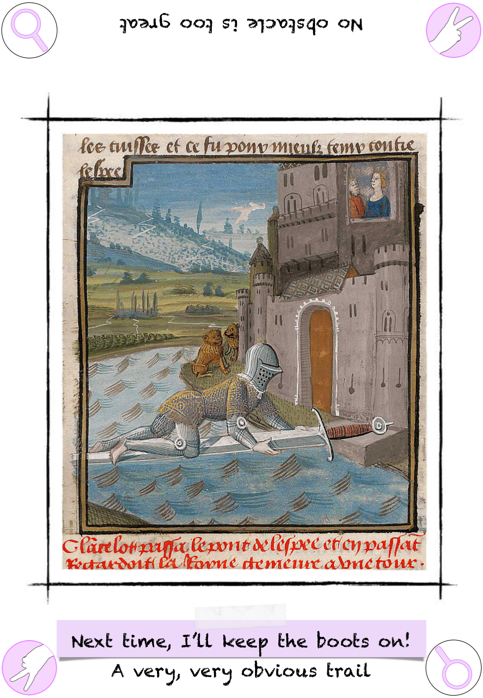 No obstacle is too great
les cuisses et ce fu pour mieulx tenir contre
lespee
Clācelot passa le pont de lespee et en passāt
Regardoit la Royne demeure a vne tour.
Next time, I'll keep the boots on!
A very, very obvious trail